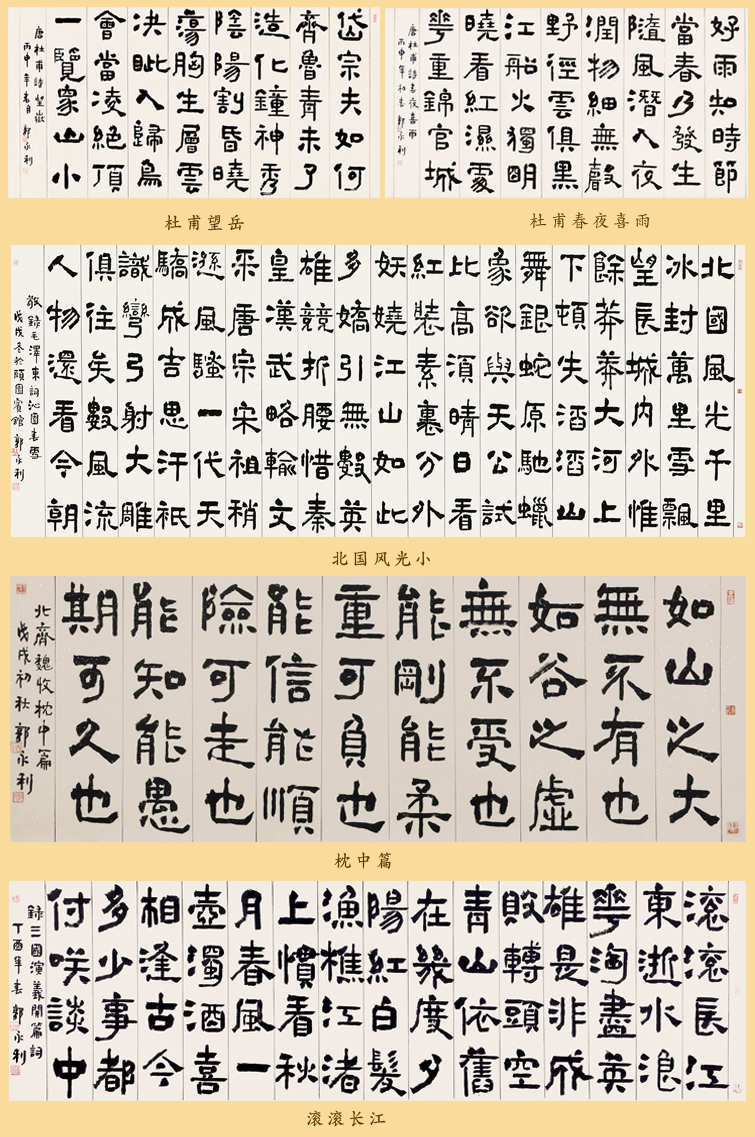 岱宗夫如何
齊魯青未了
造化鐘神秀
陰陽割昏曉
蕩胸生層雲
決眥入歸鳥
會當凌絕頂
一覽眾山小
唐杜甫詩望嶽
丙申年春月郭永利
杜甫望岳
好雨知時節
當春乃發生
隨風潛入夜
潤物細無聲
野徑雲俱黑
江船火獨明
曉看紅濕處
華重錦官城
唐杜甫詩春夜喜雨
丙申年初春郭永利
杜甫春夜喜雨
北國風光千里
冰封萬里雪飄
望長城內外惟
餘莽莽大河上
下頓失滔滔山
舞銀蛇原馳蠟
象欲與天公試
比高須晴日看
紅裝素裹分外
妖嬈江山如此
多嬌引無數英
雄競折腰惜秦
皇漢武略輸文
采唐宗宋祖稍
遜風騷一代天
驕成吉思汗祇
識彎弓射大雕
俱往矣數風流
人物還看今朝
敬錄毛澤東詞沁園春雪
戊戌冬於頤園賓館郭永利
北国风光小
如山之大
無不有也
如谷之虛
無不受也
能剛能柔
重可負也
能信能順
險可走也
能知能愚
期可久也
北齊魏收枕中篇
戊戌初秋郭永利
枕中篇
滾滾長江
東逝水浪
華淘盡英
雄是非成
敗轉頭空
青山依舊
在幾度夕
陽紅白髮
漁樵江渚
上慣看秋
月春風一
壺濁酒喜
相逢古今
多少事都
付咲談中
錄三國演義開篇詞
丁酉年春郭永利
滚滚长江